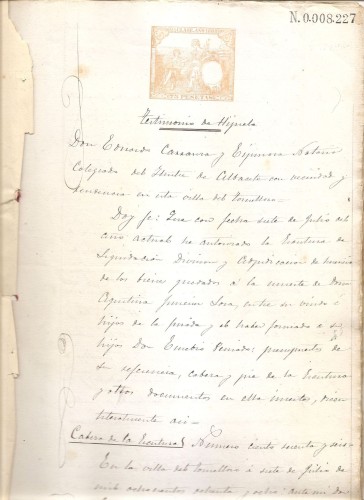 N.0.008.227
Testimonio de Hijuela
Don Eduardo Carranza y Espinosa Notario
Colegiado del Ilustre de Albacete con vecindad y
residencia en esta villa del Tomelloso.
Doy fe: Que con fecha siete de Julio del
año actual he autorizado la Escritura de
Liquidación Division y Adjudicacion de
de los bienes quedados a la muerte de Doña
Agustina Lara, entre su viudo e
hijos de la finada y al haber formado a su
hijos Don Eusebio
de su referencia, cabeza y pie de la Escritura
y otros documentos en ella insertos, dicen
literalmente asi =
Cabeza de la Escritura} Numero ciento sesenta y seis=
En la villa del Tomelloso á siete de Julio de
mil ochocientos ochenta y ocho: ante mi don